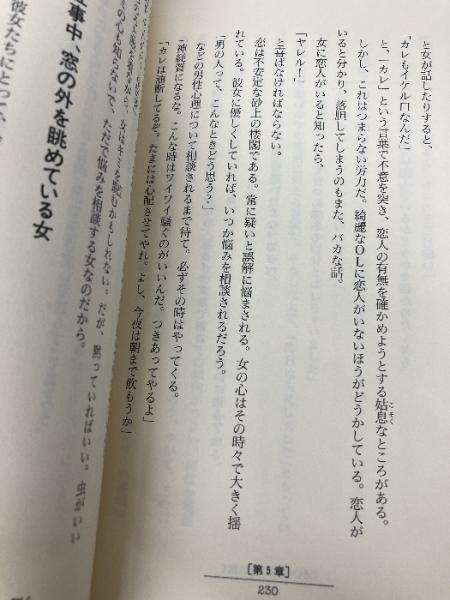 と女が話したりすると、
「カレもイケル口なんだ」
と、"カレ"という言葉で不意を突き、恋人の有無を確かめようとする姑息なところがある。
しかし、これはつまらない労力だ。綺麗なOLに恋人がいないほうがどうかしている。恋人が
いると分かり、落胆してしまうのもまた、バカな話。
女に恋人がいると知ったら、
「ヤレル！」
と喜ばなければならない。
恋は不安定な砂上の楼閣である。常に疑いと誤解に悩まされる。女の心はその時々で大きく揺
れている。彼女に優しくしていれば、いつか悩みを相談されるだろう。
「男の人って、こんなときどう思う？」
などの男性心理について相談されるまで待て。必ずその時はやってくる。
「神経質になるな。こんな時はワイワイ騒ぐのがいいんだ。つきあってやるよ」
「カレは油断してるぞ。たまには心配させてやれ。よし、今夜は朝まで飲もうか」
女はキミを恥むかもしれない。だが、黙っていればいい。虫がいい
ただで悩みを相談する女なのだから。
事中、窓の外を眺めている女
彼女たちにとって
［第5章］
230